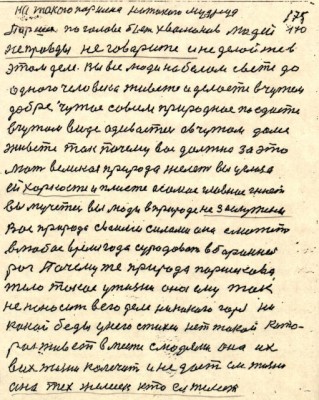 на такого паршека никакого мудреца
175
Паршек по голове бьет хваленков людей 170
не правды не говорите и не делой же в
этом деле. Вы все люди на белом свете до
одного человека живете и делаете в чужом
добре, чужое совсем природное поедаете
в чужом виде одеваетеся в чужом доме
живете так почему вас должно за это
мать великая природа жалеть вы целиза
ей харкности и плюете а самое главное гниете
вы мучаетеся вы люди в природе не заслужили
Вас природа своими силами она сможить
в любое время года суродовать в бараний
рог Почему же природа паршекова
тело такое у жизни она ему так
не поносит в его деле никакого горя ни
какой беды у него стихии нет такой кото-
рая живет вместе с людями она их
в их жизни калечит и не дает им жизни
она тех жалеить кто ея тяжело